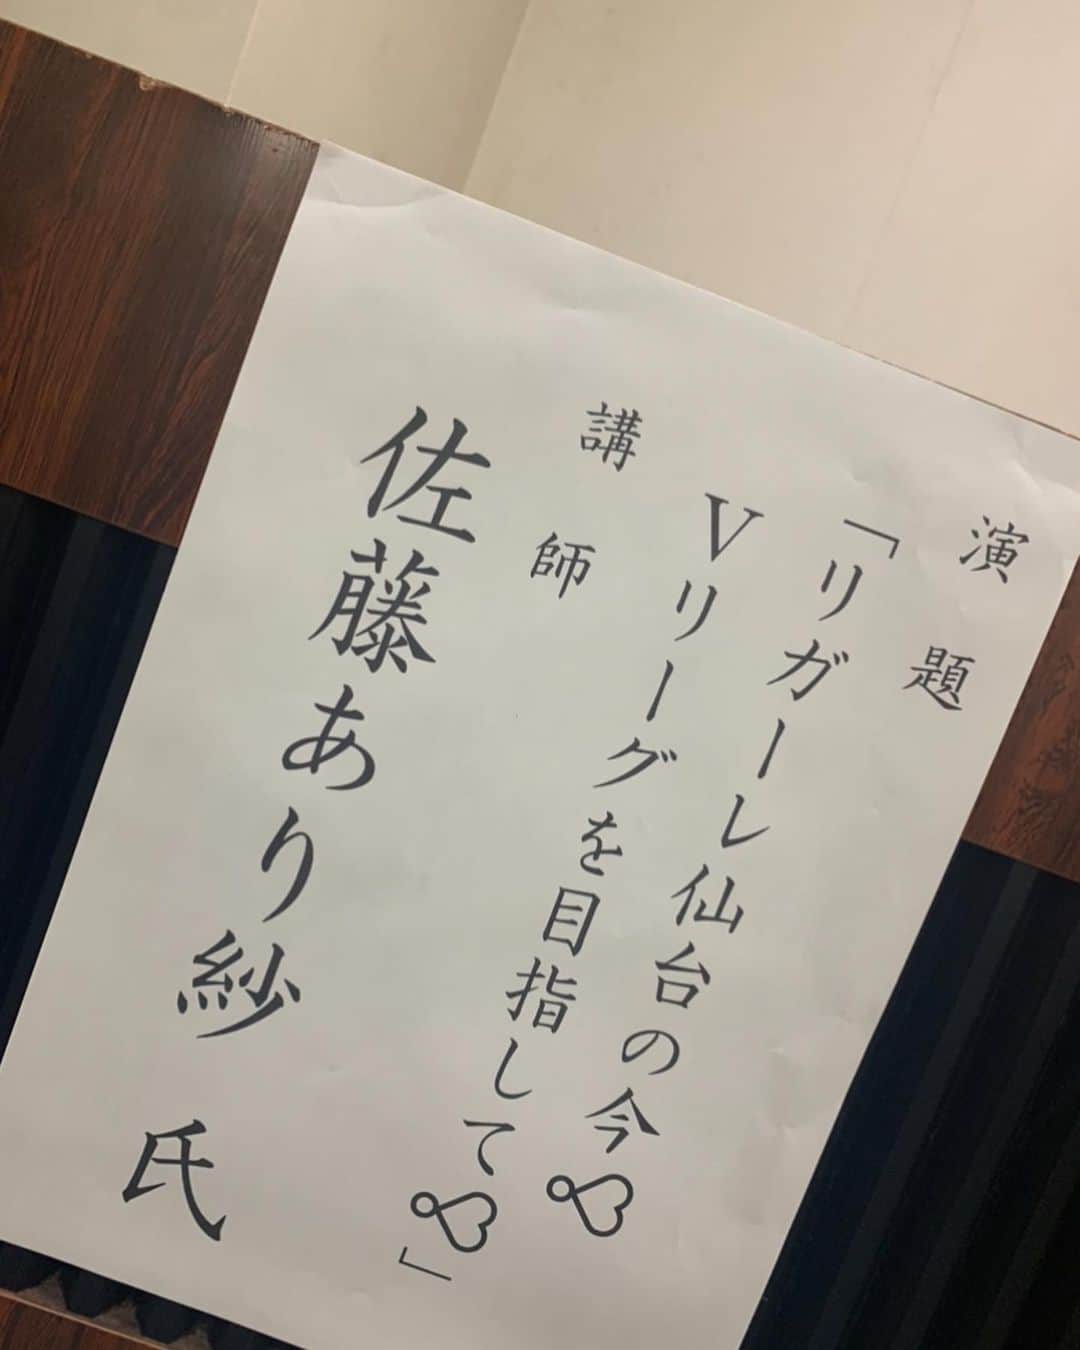 演題
「リガーレ仙台の今
Vリーグを目指して」
講師
佐藤あり紗 氏